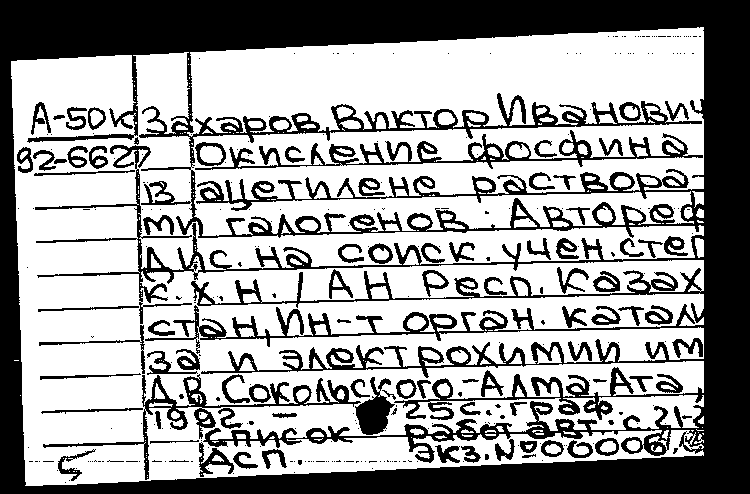 А-50К Захаров, Виктор Иванович
92-6627 Окисление фосфина
в ацетилене раствора-
ми галогенов: Автореф
Дис. на соиск. учен. степ
к.х.н. / АН Респ. Казах
стан, Ин-т орган. катали
за и электрохимии им
Д.В. Сокольского.-Алма-Ата,
1992. - 25 с.: граф.
список работ авт.: с. 21-2
5 Дсп. Экз. № 00006.